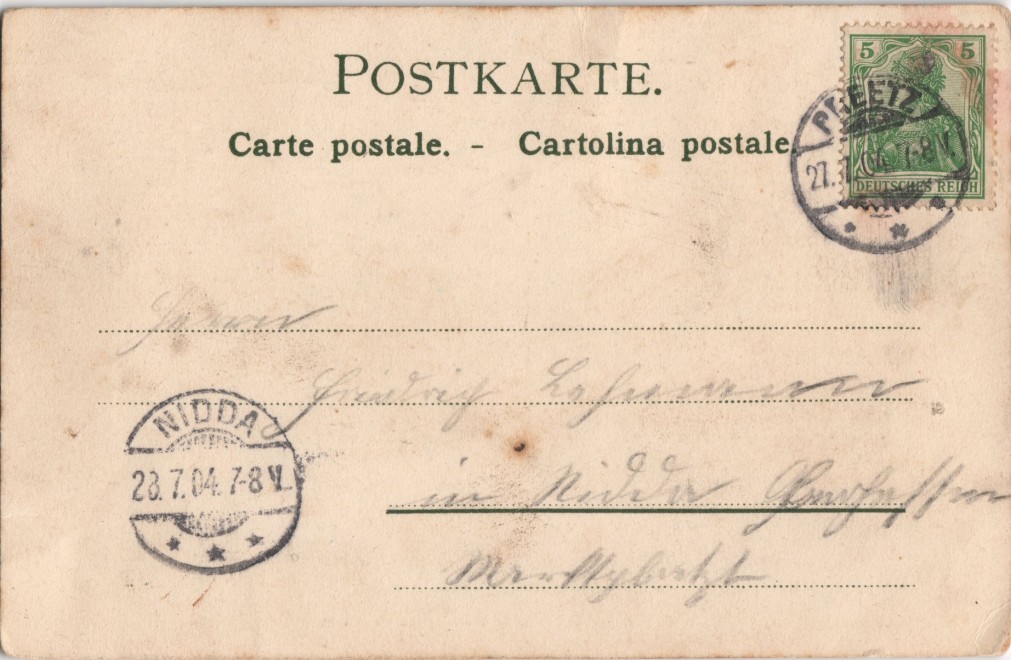 POSTKARTE.
Carte postale. - Cartolina postale.
5 5
DEUTSCHES REICH
PREETZ
27. 7. 04. 7-8 V.
Herrn
Friedrich Lehmann
in Nidda
Marktplatz
NIDDA
28. 7. 04. 7-8 V.